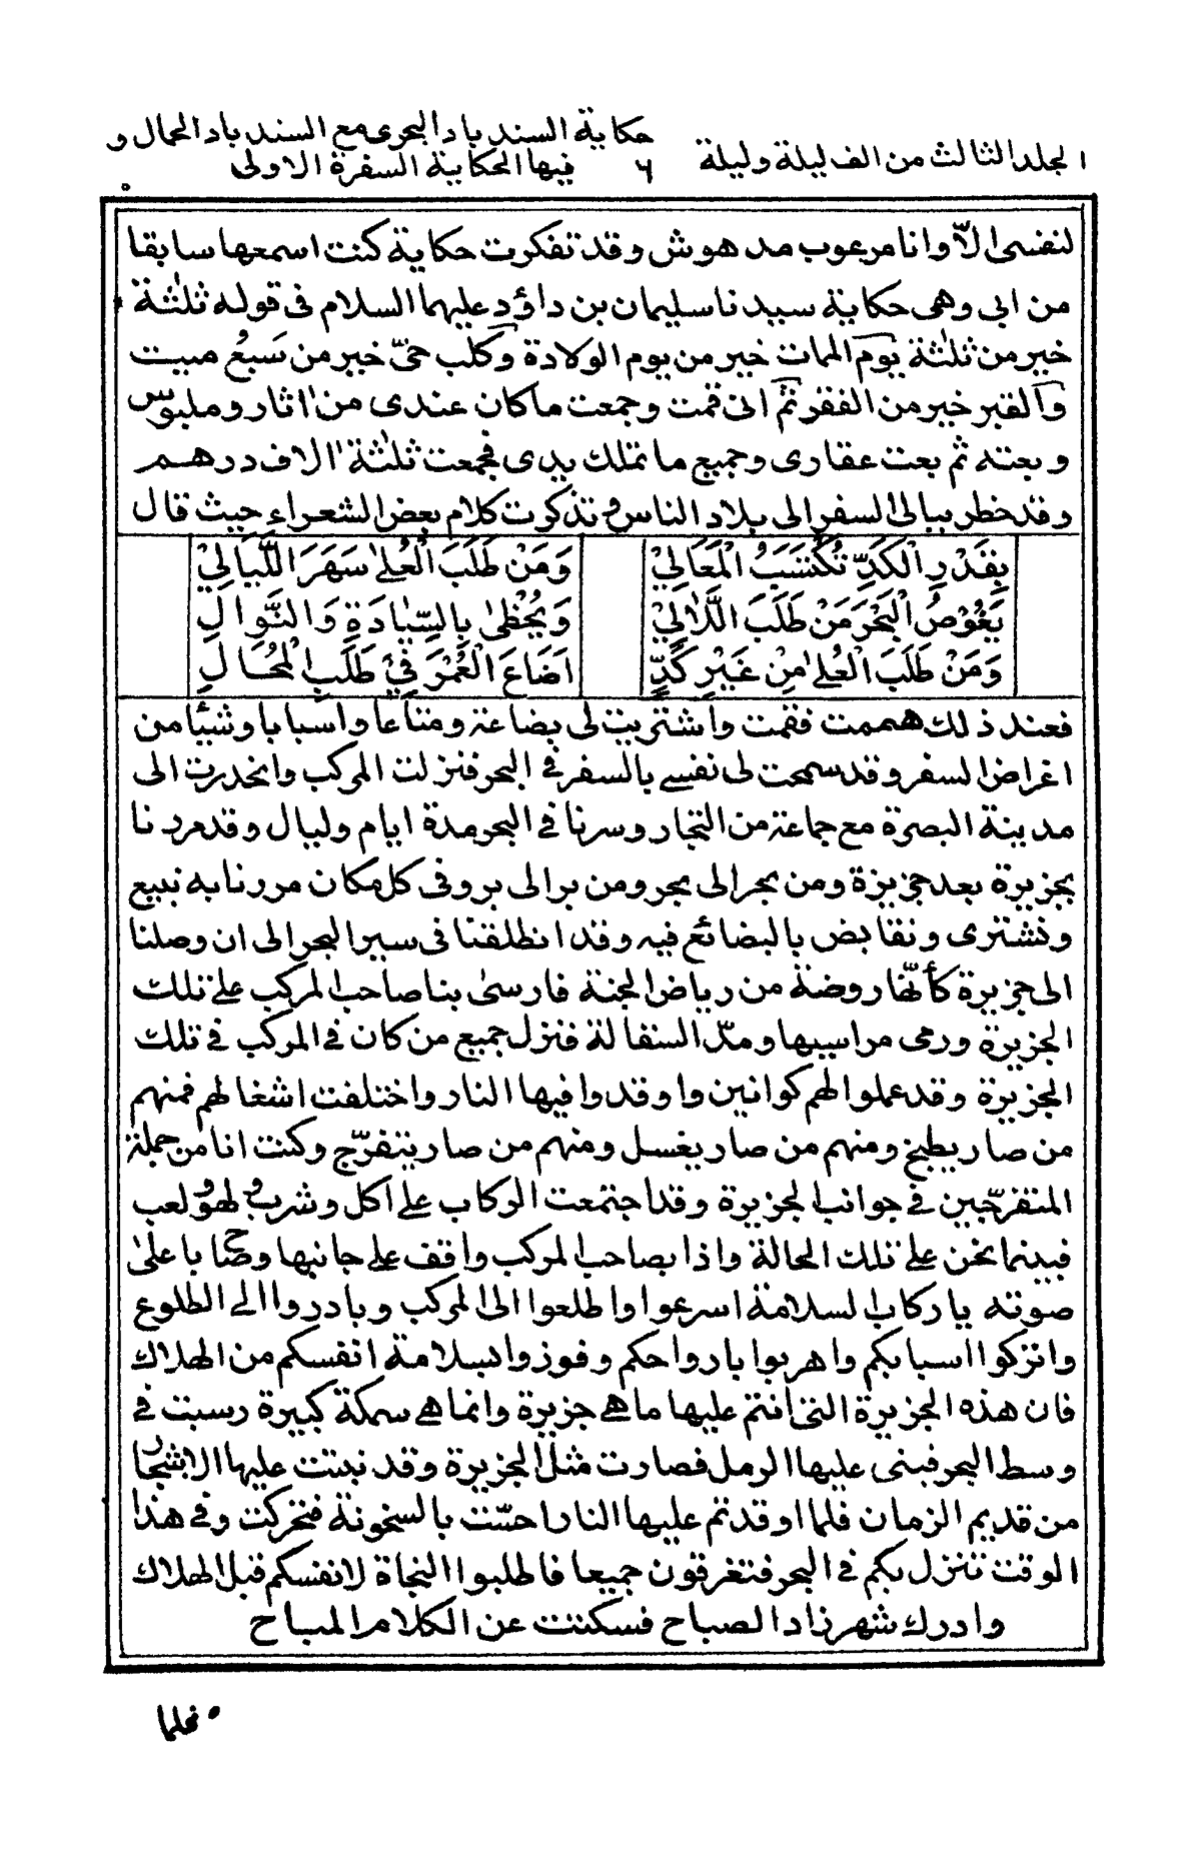 حكاية السندباد البحرى مع السندباد الحمال و
المجلد الثالث من الف ليلة وليلة ٦ فيها الحكاية السفرة الاولى
لنفسى الاّ وانا مرعوب مدهوش وقد تفكرت حكاية كنت اسمعها سابقا
من ابى وهى حكاية سيدنا سليمان بن داؤد عليهما السلام فى قوله ثلثة
خير من ثلثة يوم الممات خير من يوم الولادة وكلب حىّ خير من سَبعُ ميت
والقبر خير من الفقر ثم انى قمت وجمعت ماكان عندى من اثار وملبوس
وبعته ثم بعت عقارى وجميع ما تملك يدى فجمعت ثلثة الاف درهم
وقد خطر ببالى السفر الى بلاد الناس وتذكرت كلام بعض الشعراء حيث قال
بِقَدْرِ الْكَدِّ تُكْتَسَبُ الْمَعَالِيْ وَمَنْ طَلَبَ الْعُلىٰ سَهَرَ اللَّيَالِيْ
يَغُوْصُ الْبَحْرَ مَنْ طَلَبَ اللَّاٰلِيْ وَيَحْظىٰ بِالسِّيَادَةِ وَالنَّوالِ
وَمَنْ طَلَبَ الْعُلىٰ مِنْ غَيْرِ كَدٍّ اَضَاعَ الْعُمْرَ فِيْ طَلَبِ الْمُحَالِ
فعند ذلك هممت فقمت واشتريت لى بضاعة ومتاعا واسبابا وشيئا من
اغراض السفر وقد سمحت لى نفسى بالسفر فى البحر فنزلت المركب وانحدرت الى
مدينة البصرة مع جماعة من التجار وسرنا فى البحر مدة ايام وليال وقد مررنا
بجزيرة بعد جزيرة ومن بحر الى بحر ومن بر الى بر وفى كل مكان مررنا به نبيع
ونشترى ونقابض بالبضائع فيه وقد انطلقنا فى سير البحر الى ان وصلنا
الى جزيرة كأنّها روضة من رياض الجنة فارسىٰ بنا صاحب المركب على تلك
الجزيرة ورمى مراسيها ومدّ السقالة فنزل جميع من كان فى المركب فى تلك
الجزيرة وقد عملوا لهم كوانين واوقدوا فيها النار واختلفت اشغالهم فمنهم
من صار يطبخ ومنهم من صار يغسل ومنهم من صار يتفرّج وكنت انا من جملة
المتفرّجين فى جوانب الجزيرة وقد اجتمعت الركاب على اكل وشرب ولهو ولعب
فبينما نحن على تلك الحالة واذا بصاحب المركب واقف على جانبها وصاح باعلىٰ
صوته يا ركاب السلامة اسرعوا واطلعوا الى المركب وبادروا الى الطلوع
واتركوا اسبابكم واهربوا بارواحكم وفوزوا بسلامة انفسكم من الهلاك
فان هذه الجزيرة التى انتم عليها ما هى جزيرة وانما هى سمكة كبيرة رسبت فى
وسط البحر فبنى عليها الرمل فصارت مثل الجزيرة وقد نبتت عليها الاشجار
من قديم الزمان فلما اوقدتم عليها النار احسّت بالسخونة فتحركت وفى هذا
الوقت تنزل بكم فى البحر فتغرقون جميعا فاطلبوا النجاة لانفسكم قبل الهلاك
وادرك شهرزاد الصباح فسكتت عن الكلام المباح
فلما